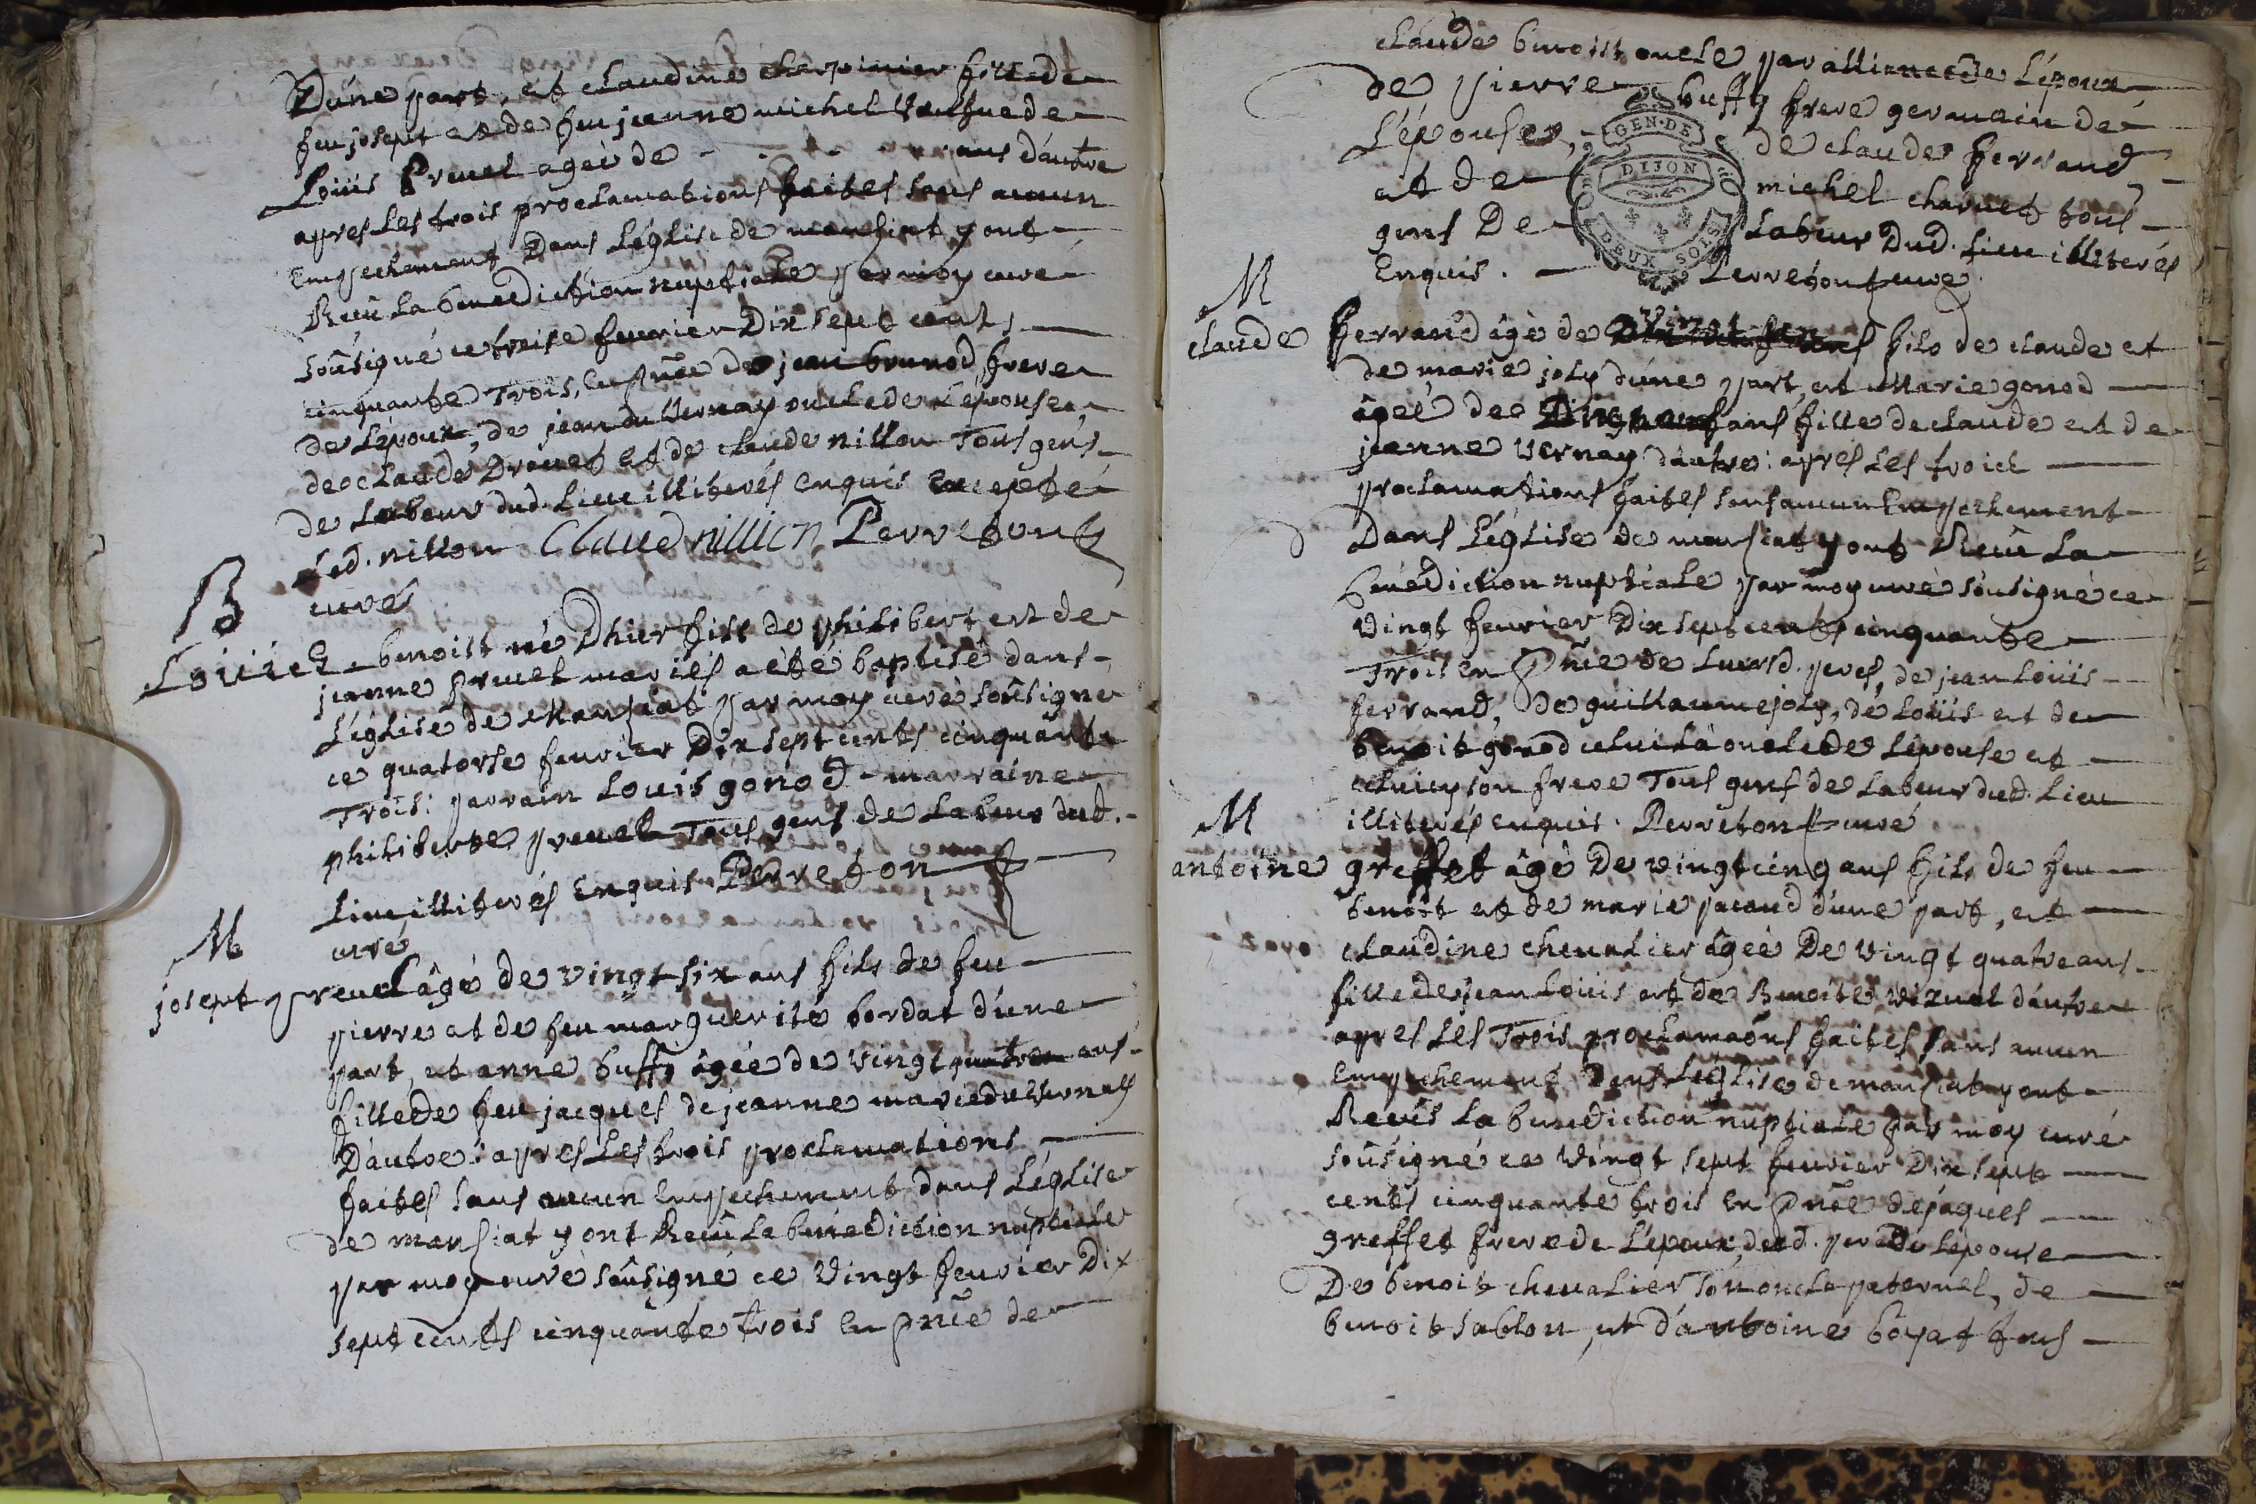 D'une part, et claudine charpinier fille de
feu josept et de feu jeanne michel veufue de
Loüis Pruel agée de . . . . ans d'autre
apres les trois proclamations faites sans aucun
empechement Dans l'église de mansiat y ont
Reçû la benediction nuptiale par moy curé
soûsigné ce treise feurier Dix sept cents
cinquante trois, en pnce de jean brunod frere
de l'époux, de jean duVernay oncle de l'épouse,
de claude Drouet et de claude nillon Tous gens
de labeur dud. lieu illiterés enquis excepté
led. nillon Claud nillion Perreton
curé
B
Loüis benoist né D'hier fils de philibert et de
jeanne pruel mariés a été baptisé dans
l'église de Mansiat par moy curé soûsigné
ce quatorse feurier Dix sept cents cinquante
Trois: parrain Louis gonod marraine
philiberte pruel Tous gens de labeur dud.
lieu illiterés enquis Perreton
curé
M
josept preuel âgé de vingt six ans fils de feu
pierre et de feu marguerite bordat d'une
part, et anne buffy âgée de vingt quatre ans
fille de feu jacques de jeanne marie duVernay
D'autre: apres les trois proclamations
faites sans aucun empechement dans l'église
de mansiat y ont Reçû la bénediction nuptiale
par moy curé soûsigné ce vingt feurier Dix
sept cents cinquante trois en pnce de
claude benoist oncle par alliance de l'époux
de pierre buffy frere germain de
l'épouse, de claude ferrand
et de michel charuet tous
gens De labeur Dud. lieu illiterés
enquis. Perreton curé
GEN. DE DIJON DEUX SOLS
M
claude ferrand âgé de fils de claude et
de marie joly d'une part, et Marie gonod
âgée de ans fille de claude et de
jeanne vernay d'autre: apres les trois
proclamations faites sans aucun empechement
Dans l'église de mansiat y ont Reçû la
bénédiction nuptiale par moy curé soûsigné ce
vingt feurier Dix sept cents cinquante
Trois en pnce de leursd. peres, de jean Loüis
ferrand, de guillaume joly, de Loüis et de
benoit gonod celui là oncle de l'épouse et
celuicy son frere Tous gens de labeur dud. lieu
illiterés enquis. Perreton curé
M
antoine greffet âgé De vingt cinq ans fils de feu
benoit et de marie pacaud d'une part, et
claudine cheualier âgée De vingt quatre ans
fille de jean Loüis et de Benoite vixuel d'autre
apres les Trois proclamaôns faites sans aucun
empechement Dans l'église de mansiat y ont
Receûs la benediction nuptiale par moy curé
soûsigné ce vingt sept feurier Dix sept
cents cinquante trois en pnce de jâques
greffet frere de l'époux, dud. pere De l'épouse
De benoit cheualier son oncle paternel, de
benoit sablon, et d'antoine boyat tous